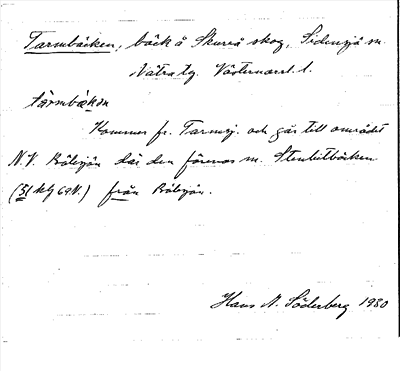 Tarmbäcken, bäck å Skureå skog, Sidensjö sn.
Nätra tg. Västernorrl. l.
tármbäkɑn
Kommer fr. Tarmsj. och går till området
N.V. Bölesjön där den förenas m. Stenbitbäcken
(51 klj 69N.) från Bölesjön.
Hans N. Söderberg 1980